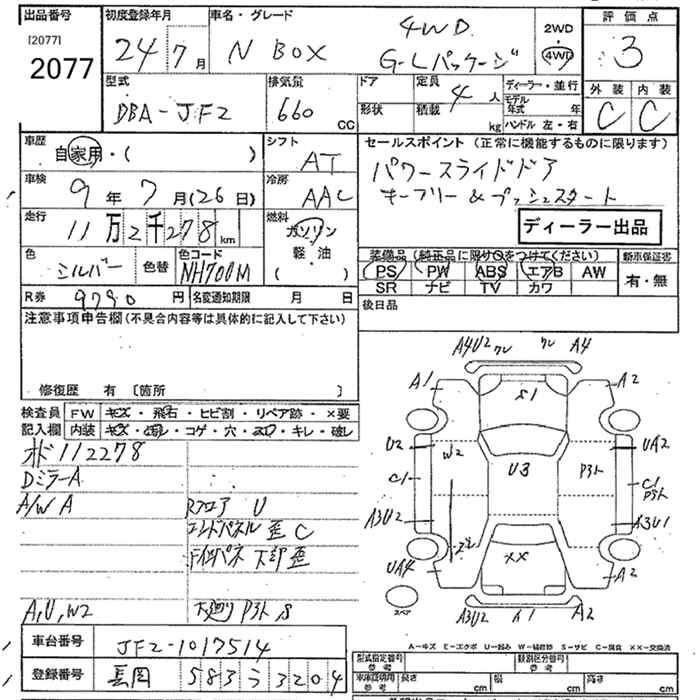 出品番号 初度登録年月 車名・グレード 評価点
[2077] 2077
24年 7月 N BOX 4WD G-Lパッケージ 2WD・4WD 3
型式 排気量 ドア 定員 ディーラー・並行 外装 内装
DBA-JF2 660 CC 形状 積載 4人 kg モデル年式 年 ハンドル 左・右 C C
車歴 自家用・( ) シフト AT
セールスポイント (正常に機能するものに限ります)
車検 9年 7月(26日) 冷房 AAC
パワースライドドア
キーフリー & プッシュスタート
走行 11万2千278km 燃料 ガソリン 軽・油 ( )
ディーラー出品
色 シルバー 色替 色コード NH700M
装備品 (純正品に限り○をつけてください) 新車保証書
PS PW ABS エアB AW 有・無
SR ナビ TV カワ
R券 9790円 名変通知期限 月 日
後日品
注意事項申告欄(不具合内容等は具体的に記入して下さい)
修復歴 有 〔箇所 〕
検査員 FW キズ・飛石・ヒビ割・リペア跡・×要
記入欄 内装 キズ・コゲ・穴・キレ・破レ
オド112278
DミラーA
A/W A RフロアU
エンドパネル歪C
下部歪
A,U,W2 下廻り P3ト,S
車台番号 JF2-1017514
登録番号 長岡 583 う 3204
A4U2 ワレ ワレ A4
A1 S1 A2
U2 W2 U3 P3ト UA2
C1 C1 P3ト
A3U2 A3U1
UA4 XX A2
スペア A3U2 A1 A2
A-キズ E-エクボ U-凹み W-補修跡 S-サビ C-腐食 XX-交換済
型式指定番号 参考 類別区分番号 参考
車庫証明用 参考 長さ cm 幅 cm 高さ cm